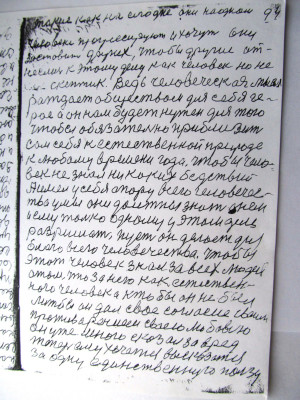 такие как на сегодне они на одном 94
человеке прогрессируют и хочут они
заставить других, чтобы другие от-
неслись к этому делу как человек но не
как скептик. Ведь человеческая мысль
раждает обществом для себя ге-
роя а он нам будет нужен для того
чтобы обязательно приблизит
сам себя к естественной природе
к любому времени года, чтобы чело-
век не знал никаких бедствий
Имел у себя опору всего человечес-
тва умы они должны знать о нем
и ему только одному у этом деле
разришат, пуст он делает для
блага всего человечества, чтобы
этот человек знал за всех людей
о том, что за него как естествен-
ного человека кто бы он не был
лиш бы он дал свое согласие своим
противоречием своею любовью
он уже много сказал за вред
тепер ему хочется высказатся
за одну единственную ползу